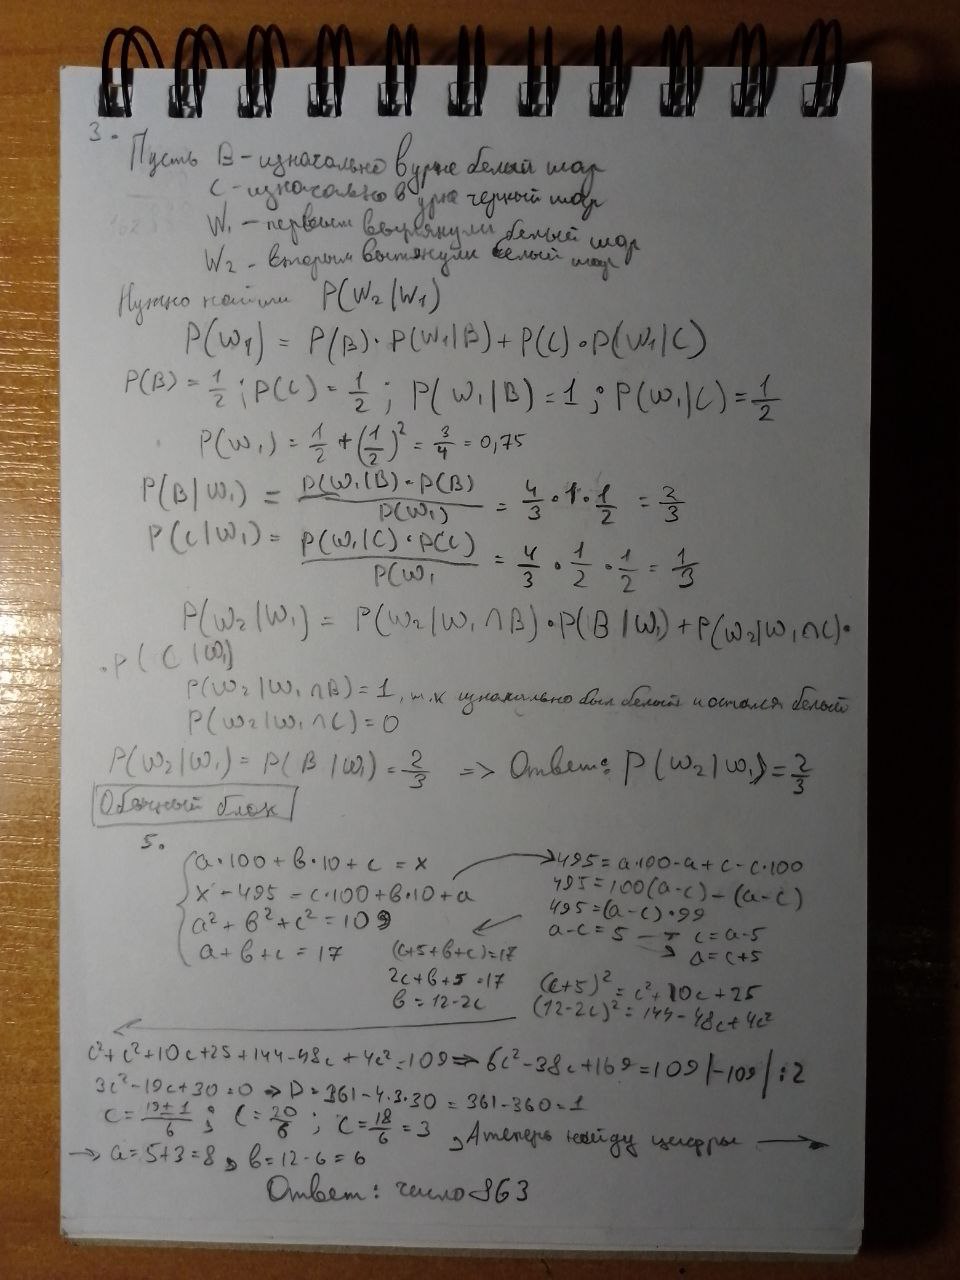 3.
Пусть B - изначально в урне белый шар
C - изначально в урне черный шар
W₁ - первым вытянули белый шар
W₂ - вторым вытянули белый шар
Нужно найти P(W₂|W₁)
P(W₁) = P(B)·P(W₁|B)+P(C)·P(W₁|C)
P(B) = 1/2 ; P(C) = 1/2 ; P(W₁|B) = 1 ; P(W₁|C) = 1/2
P(W₁) = 1/2 + (1/2)² = 3/4 = 0,75
P(B|W₁) = P(W₁|B)·P(B) / P(W₁) = 4/3 · 1 · 1/2 = 2/3
P(C|W₁) = P(W₁|C)·P(C) / P(W₁ = 4/3 · 1/2 · 1/2 = 1/3
P(W₂|W₁) = P(W₂|W₁∩B)·P(B|W₁)+P(W₂|W₁∩C)·
·P(C|W₁)
P(W₂|W₁∩B) = 1, т.к изначально был белый и остался белый
P(W₂|W₁∩C) = 0
P(W₂|W₁) = P(B|W₁) = 2/3 => Ответ: P(W₂|W₁) = 2/3
Обычный блок
5.
a·100+b·10+c = x
x - 495 = c·100+b·10+a
a²+b²+c² = 109
a+b+c = 17
495 = a·100-a+c-c·100
495 = 100(a-c)-(a-c)
495 = (a-c)·99
a-c = 5 → c = a-5
→ a = c+5
(c+5+b+c) = 17
2c+b+5 = 17
b = 12-2c
(c+5)² = c²+10c+25
(12-2c)² = 144-48c+4c²
c²+c²+10c+25+144-48c+4c² = 109 => 6c²-38c+169 = 109 |-109| :2
3c²-19c+30 = 0 => D = 361-4·3·30 = 361-360 = 1
c = 19±1/6 ; c = 20/6 ; c = 18/6 = 3 , А теперь найду цифры →
→ a = 5+3 = 8 , b = 12-6 = 6
Ответ: число 863